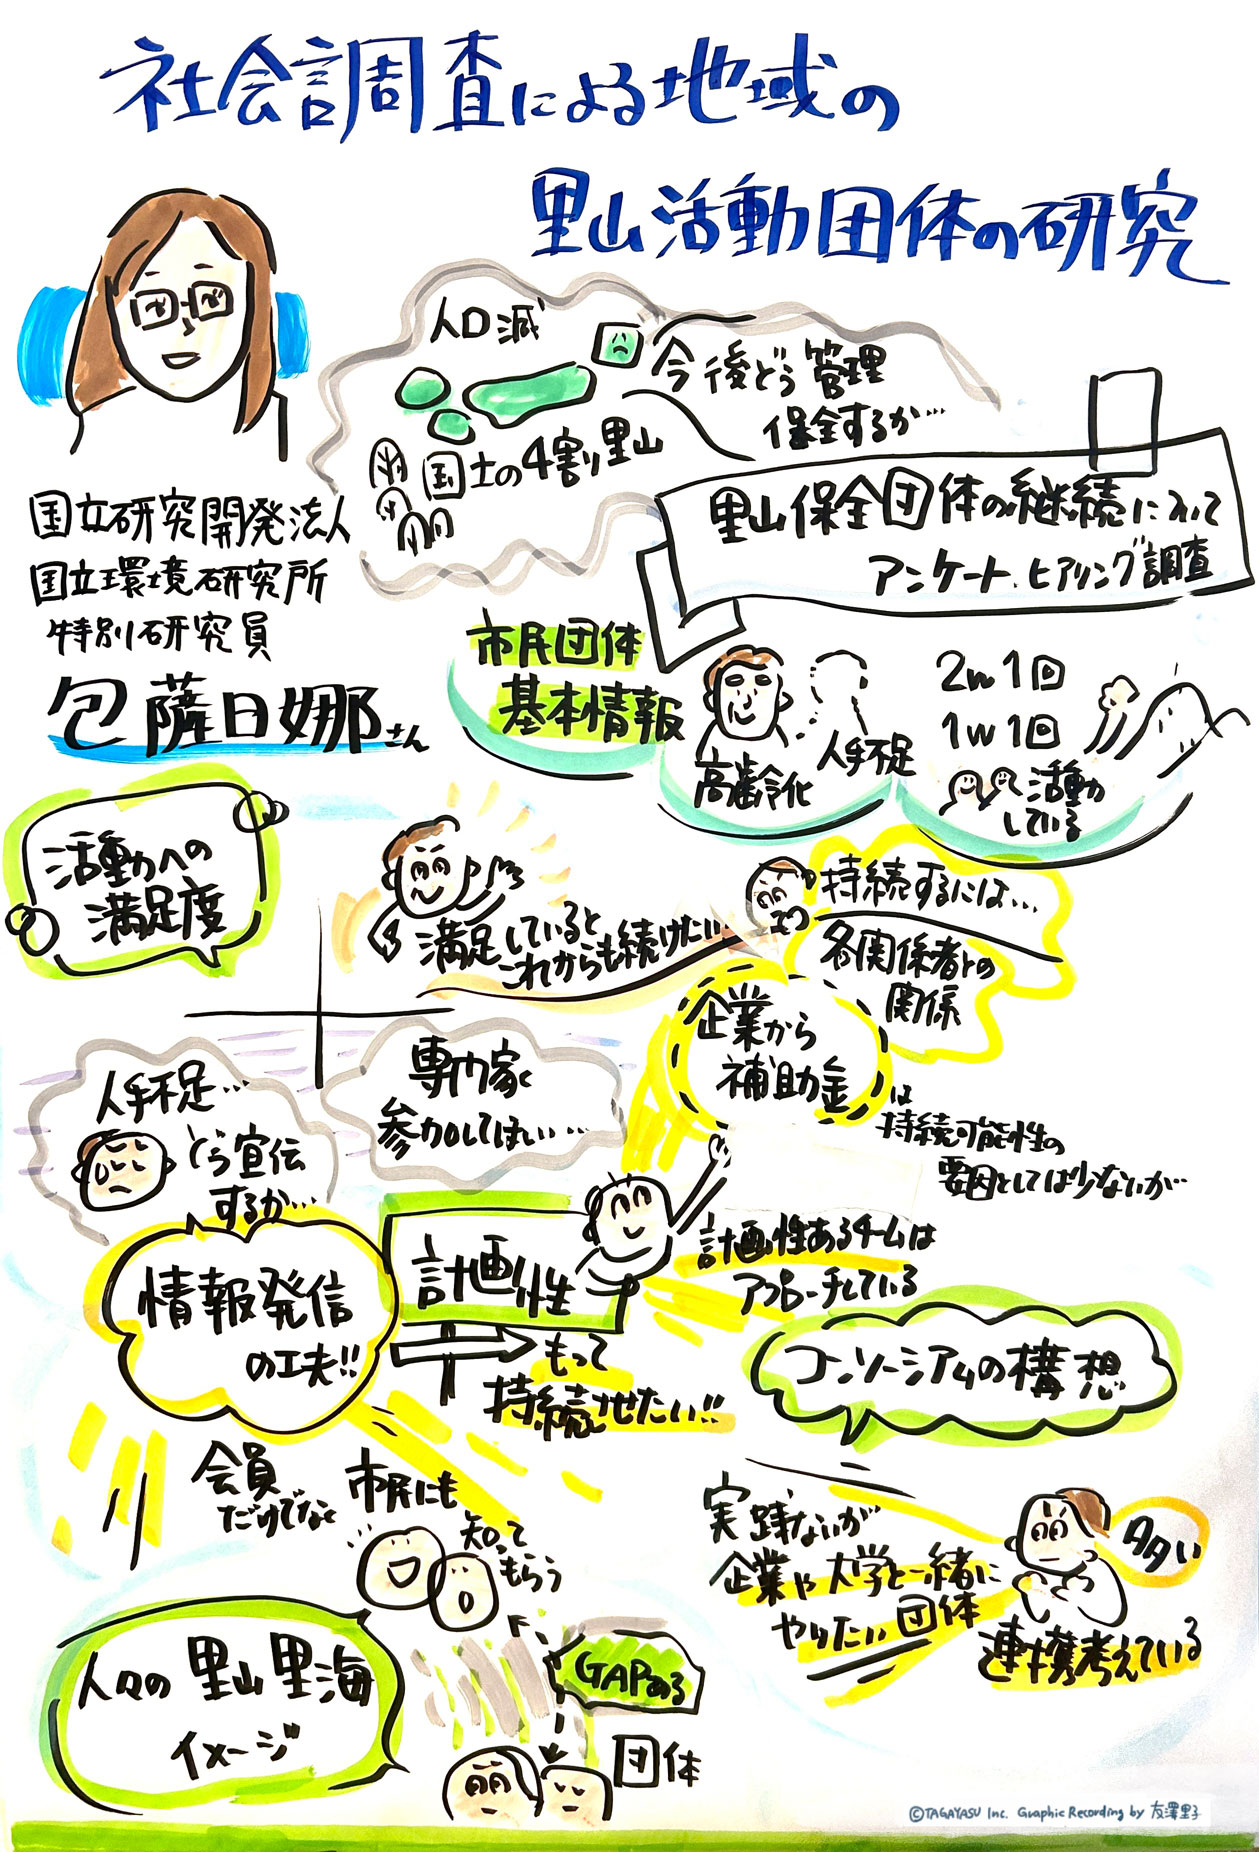 社会調査による地域の
里山活動団体の研究
人口減
今後どう管理
保全するか…
国土の4割り里山
国立研究開発法人
国立環境研究所
特別研究員
包薩日娜さん
里山保全団体の継続にえって
アンケート.ヒアリング調査
市民団体
基本情報
高齢化
人手不足
2w1回
1w1回
活動
している
活動への
満足度
満足していると
これからも続けたい…
持続するには…
各関係者との
関係
企業から
補助金
は
持続可能性の
要因としては少ないが…
人手不足…
どう宣伝
するか…
専門家
参加してほしい…
計画性
もって
持続させたい!!
計画性あるチームは
アプローチしている
情報発信
の工夫!!
コンソーシアムの構想
会員
だけでなく
市民にも
知って
もらう
実践ないが
企業や大学と一緒に
やりたい団体
多い
連携考えている
人々の里山里海
イメージ
GAPある
団体
©TAGAYASU Inc. Graphic Recording by 友澤里子